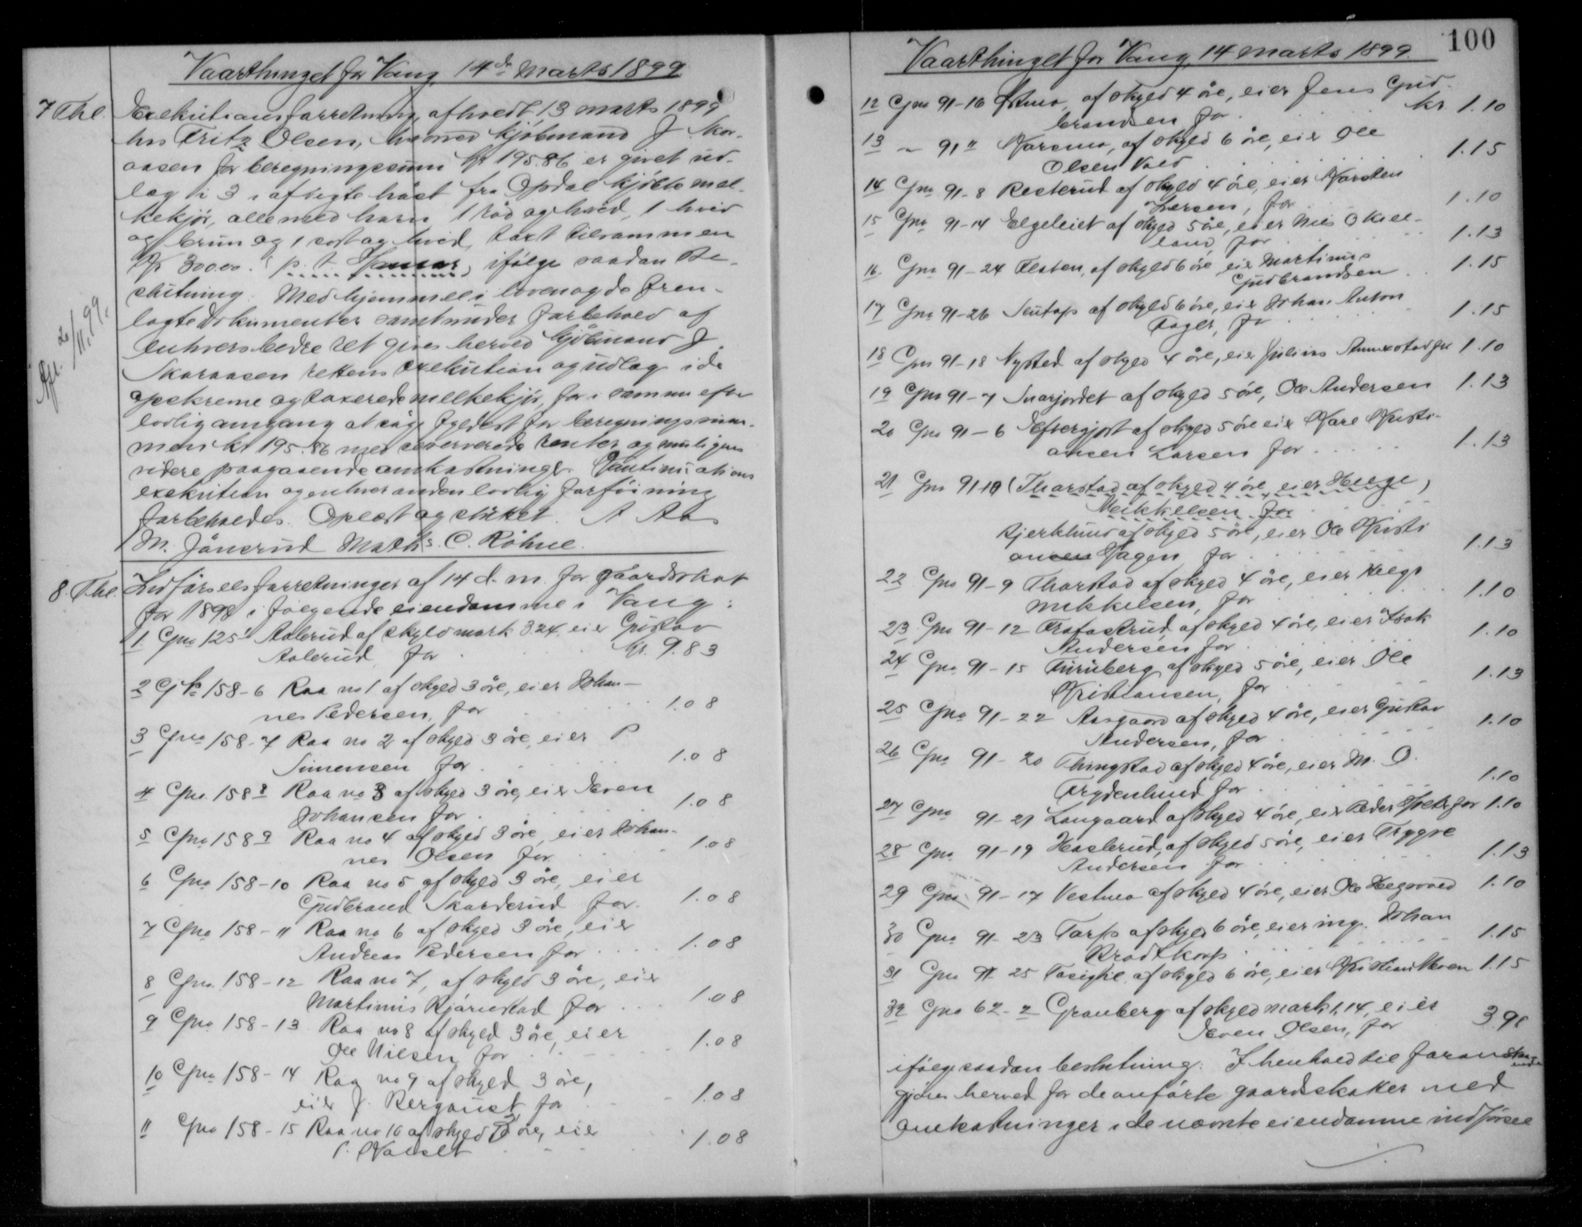 Vaarthinget for Vang 14de Marts 1899
7 Thl. Exekutionsforretning afholdt 13 marts 1899
hos Fritz Olsen, hvorved kjöbmand J Skar-
aasen for beregningssum kr 195.86 er givet ud-
læg i 3 i aftigte höst fra Opdal kjöbte mel-
kekjör, alle med horn 1 röd og hvid, 1 hvid
og brun og 1 sort og hvid, taxt tilsammen
kr 300.00. p. t. ifölge saadan Be-
slutning. Med hjemmel i loven og de frem-
lagte dokumenter samt under forbehold af
enhvers bedre ret gives herved kjöbmand J.
Skaraasen rettens exekution og udlæg i de
opskrevne og taxerede melkekjör, for i samme efter
lovlig omgang at söge fyldest for beregningssum-
men kr 195.86 med reserverede renter og muligens
videre paagaaende omkostninger. Kontinuations
exekution og enhver anden lovlig forföining
forbeholdes. Oplæst og sluttet. A Aas
M. Jönsrud Maths. C. Röhne.
Afl. 20/11.99.
8 Thl. Indförselsforretninger af 14 d. m. for gaardskat
for 1898 i fölgende eiendomme i Vang:
1 Gno 125 Aalerud af skyld mark 3.24, eier Gustav
Aalerud, for kr. 9.83
2 Gno 158-6 Raa no 1 af skyld 3 öre, eier Johan-
nes Pedersen, for 1.08
3 Gno 158-7 Raa no 2 af skyld 3 öre, eier P
Simensen for 1.08
4 Gno 158 8 Raa no 3 af skyld 3 öre, eier Even
Johansen for 1.08
5 Gno 158 9 Raa no 4 af skyld 3 öre, eier Johan-
nes Olsen for 1.08
6 Gno 158-10 Raa no 5 af skyld 3 öre, eier
Gudbrand Skarderud for 1.08
7 Gno 158-11 Raa no 6 af skyld 3 öre, eier
Andreas Pedersen for 1.08
8 Gno 158-12 Raa no 7, af skyld 3 öre, eier
Martinus Björnstad for 1.08
9 Gno 158-13 Raa no 8 af skyld 3 öre, eier
Ole Nilsen for 1.08
10 Gno 158-14 Raa no 9 af skyld 3 öre,
eier J. Bergquist for 1.08
11 Gno 158-15 Raa no 10 af skyld 3 öre, eier
1.08
100
Vaarthinget for Vang, 14 marts 1899.
12 Gno 91-16 af skyld 4 öre, eier Jens Gud-
brandsen for kr 1.10
13 " 91 " af skyld 6 öre, eier Ole
Olsen Vold 1.15
14 Gno 91-8 Resterud af skyld 4 öre, eier Karsten
Iversen, for 1.10
15 Gno 91-14 Elgeleiet af skyld 5 öre, eier Nils Okel-
land, for 1.13
16 Gno 91-24 Flaten, af skyld 6 öre, eier Martinus
Gudbrandsen 1.15
17 Gno 91-26 af skyld 6 öre, eier Johan Anton
Fager, for 1.15
18 Gno 91-18 Nysted af skyld 4 öre, eier Julius for 1.10
19 Gno 91-7 Snarjordet af skyld 5 öre, Ole Andersen 1.13
20 Gno 91-6 Eftergjort af skyld 5 öre eier Kristi-
ansen Larsen for 1.13
21 Gno 91.10 (Tharstad af skyld 4 öre, eier Helge)
Meikkelsen for
Bjerklund af skyld 5 öre, eier Ole Kristi
ansen Hagen for 1.13
22 Gno 91-9 Tharstad af skyld 4 öre, eier Helge
Mikkelsen, for 1.10
23 Gno 91-12 af skyld 4 öre, eier Isak
Andersen for 1.10
24 Gno 91-15 Furuberg af skyld 5 öre, eier Ole
Kristiansen, for 1.13
25 Gno 91-22 Aasgaard af skyld 4 öre, eier Gustav
Andersen, for 1.10
26 Gno 91-20 Thingstad af skyld 4 öre, eier M. O.
Frydenlund for 1.10
27 Gno 91-21 Langaard af skyld 4 öre, eier Peder for 1.10
28 Gno 91-19 Haslerud, af skyld 5 öre, eier Trygve
Andersen for 1.13
29 Gno 91-17 Vestmo af skyld 4 öre, eier Ole 1.10
30 Gno 91-23 af skyld 6 öre, eier ing. Johan
Brodtkorb 1.15
31 Gno 91 25 af skyld 6 öre, eier Kristian Moen 1.15
32 Gno 62-2 Granberg af skyld mark 1,14, eier
Even Olsen, for 3.91
ifölge saadan beslutning. I henhold til foranstaa-
ende
gives herved for de anförte gaardskatter med
omkostninger i de nævnte eiendomme indförsel